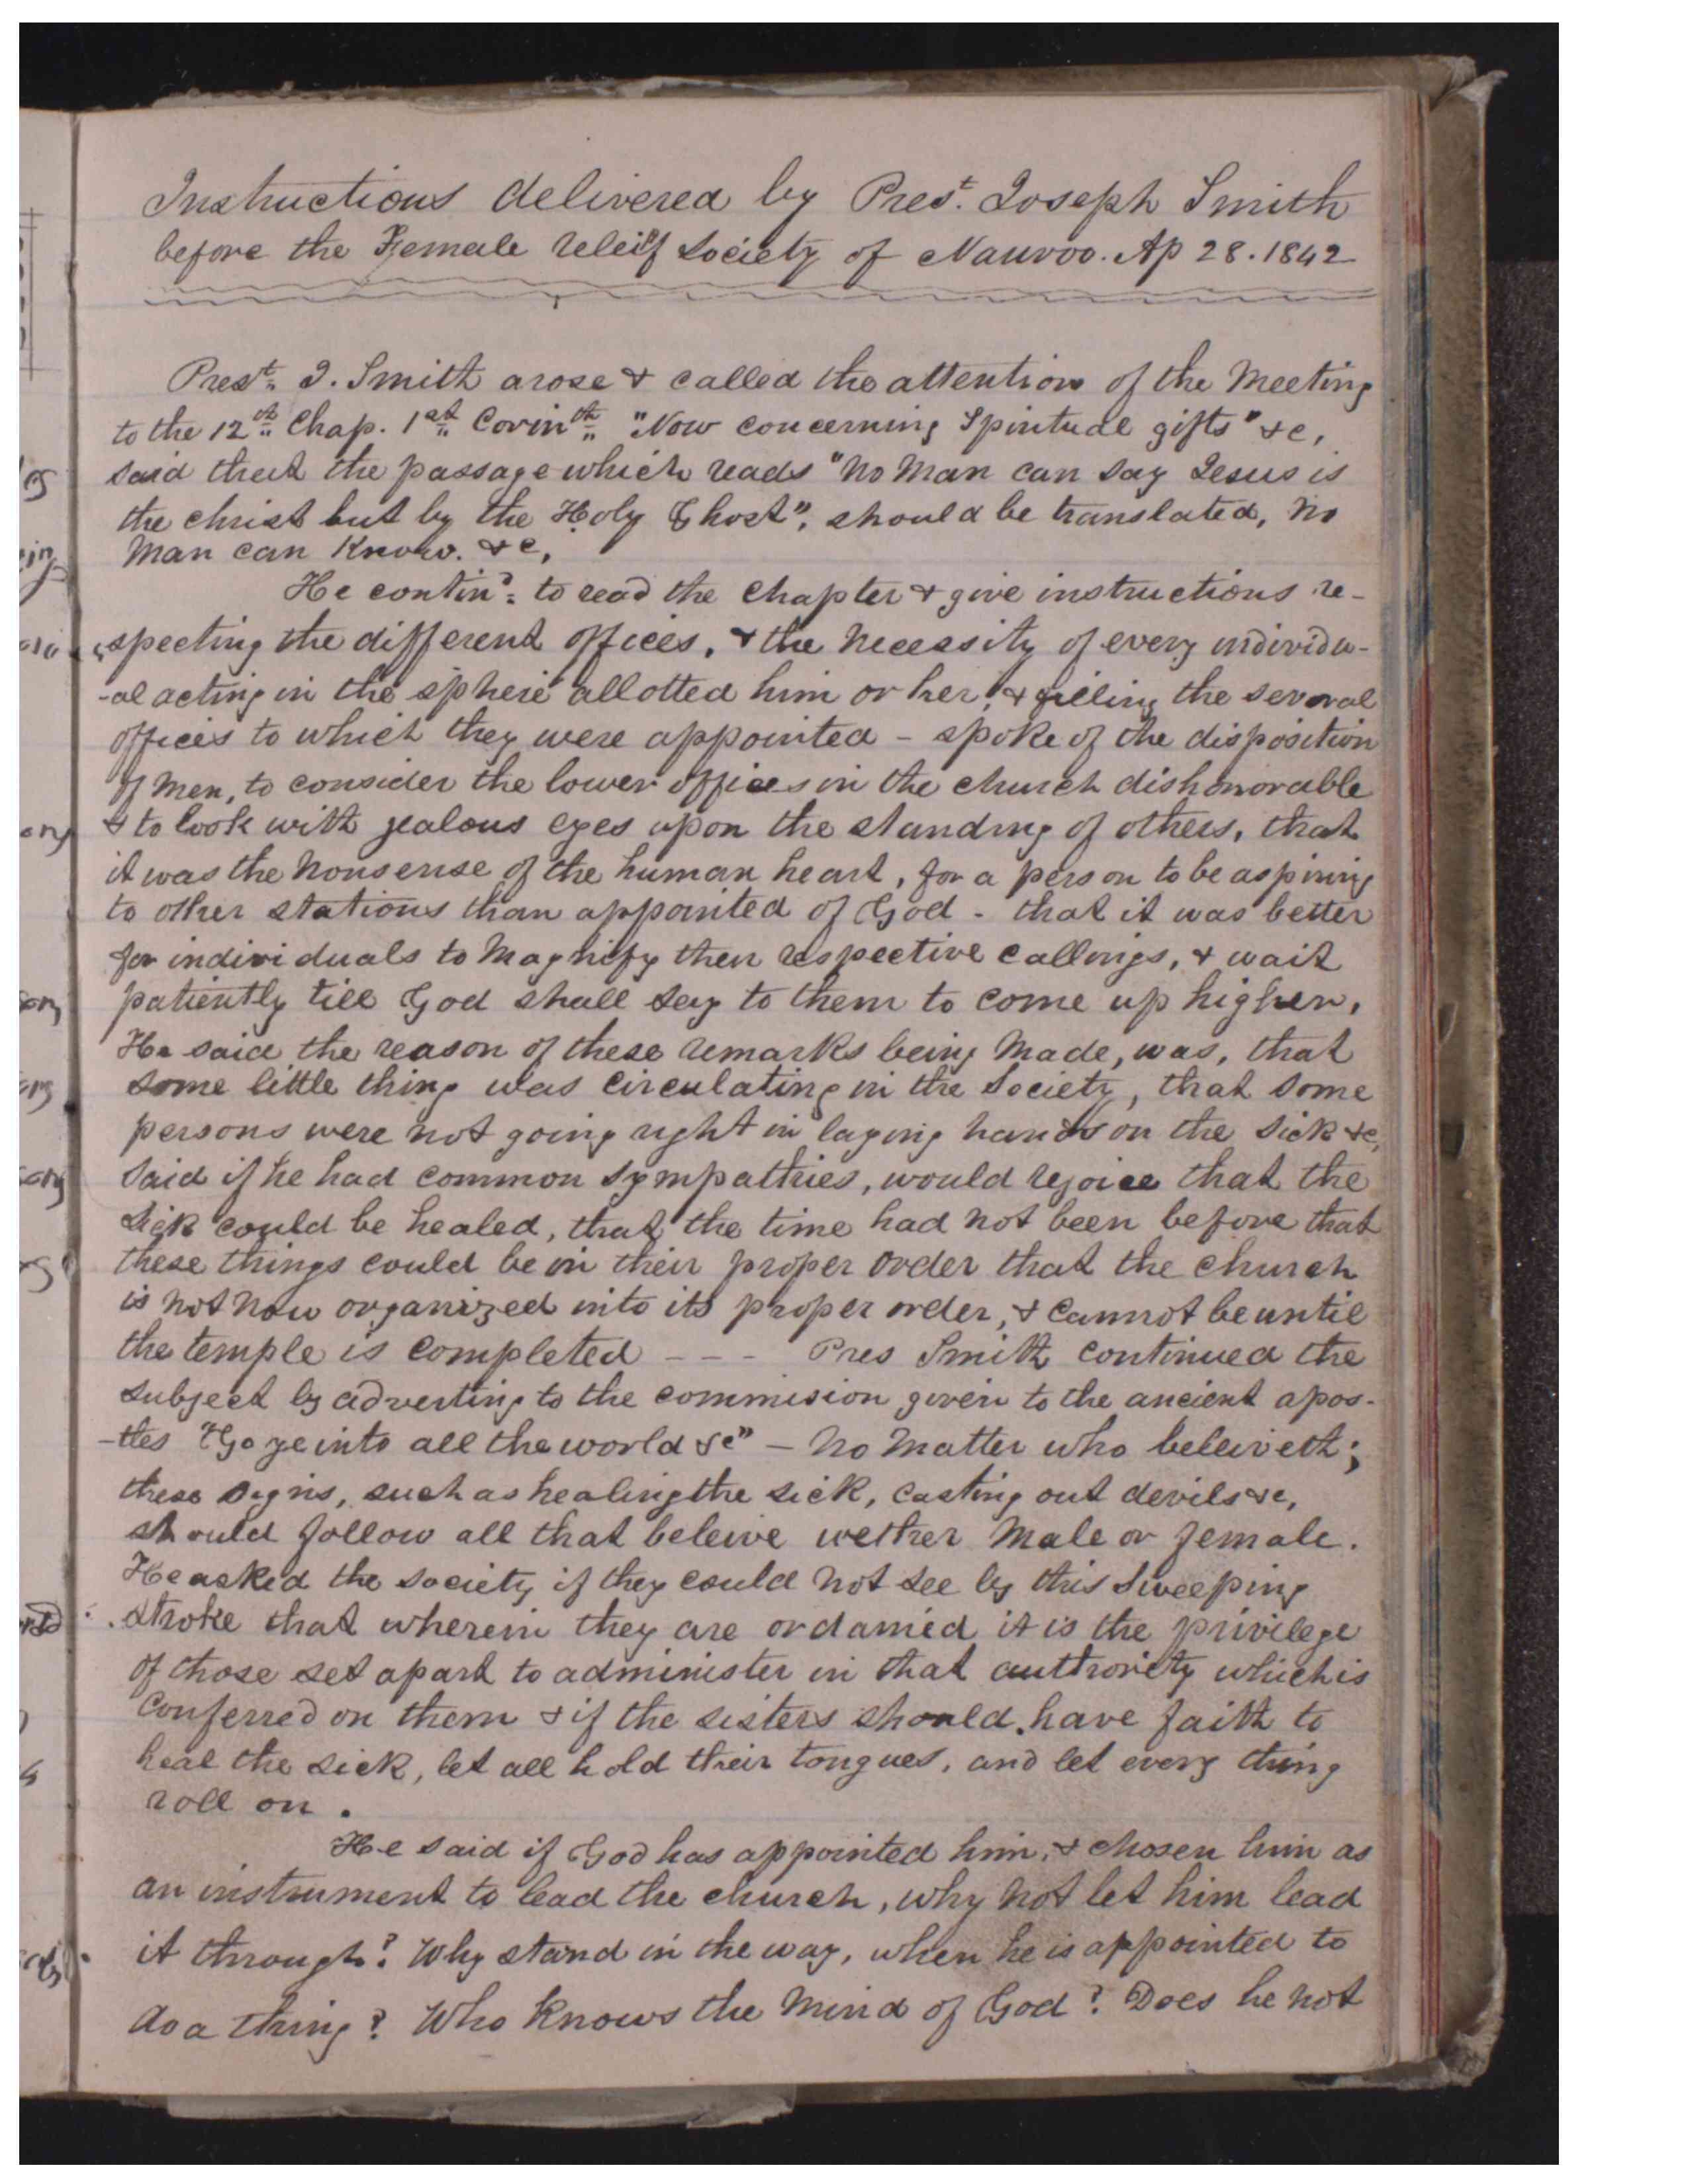 Instructions delivered by Prest. Joseph Smith
before the Female releif Society of Nauvoo. Ap 28. 1842
Prest. J. Smith arose & called the attention of the Meeting
to the 12th Chap. 1st Corinth "Now concerning Spiritual gifts" &c,
said that the passage which reads "No Man can say Jesus is
the christ but by the Holy Ghost", should be translated, No
Man can Know. &c,
He contind: to read the Chapter & give instructions re-
specting the different offices, & the Necessity of every individu-
-al acting in the sphere allotted him or her, & filling the several
offices to which they were appointed - spoke of the disposition
of Men, to consider the lower offices in the church dishonorable
& to look with jealous eyes upon the standing of others, that
it was the Nonsense of the human heart, for a person to be aspiring
to other stations than appointed of God - that it was better
for individuals to Magnify their respective callings, & wait
patiently till God shall say to them to come up higher,
He said the reason of these remarks being Made, was, that
some little thing was circulating in the Society, that some
persons were not going right in laying hands on the sick &c,
said if he had common sympathies, would rejoice that the
sick could be healed, that the time had not been before that
these things could be in their proper order that the church
is not now organized into its proper order, & cannot be until
the temple is completed - - - Pres Smith continued the
subject by adverting to the commision given to the ancient apos-
-tles "Go ye into all the world &c" - No Matter who beleiveth;
these signs, such as healing the sick, casting out devils &c,
should follow all that beleive wether Male or female.
He asked the society if they could not see by this sweeping
stroke that wherein they are ordained it is the privilege
of those set apart to administer in that authority which is
conferred on them & if the sisters should have faith to
heal the sick, let all hold their tongues, and let every thing
roll on.
He said if God has appointed him, & chosen him as
an instrument to lead the church, why not let him lead
it through? Why stand in the way, when he is appointed to
do a thing? Who Knows the Mind of God? Does he not